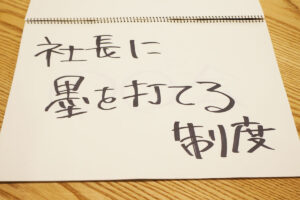 社長に
墨を打てる
制度